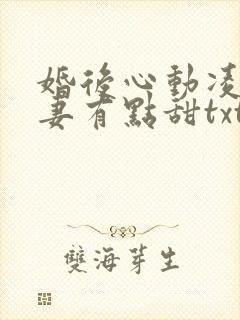 婚後心動凌
妻有點甜txt
雙海芽生